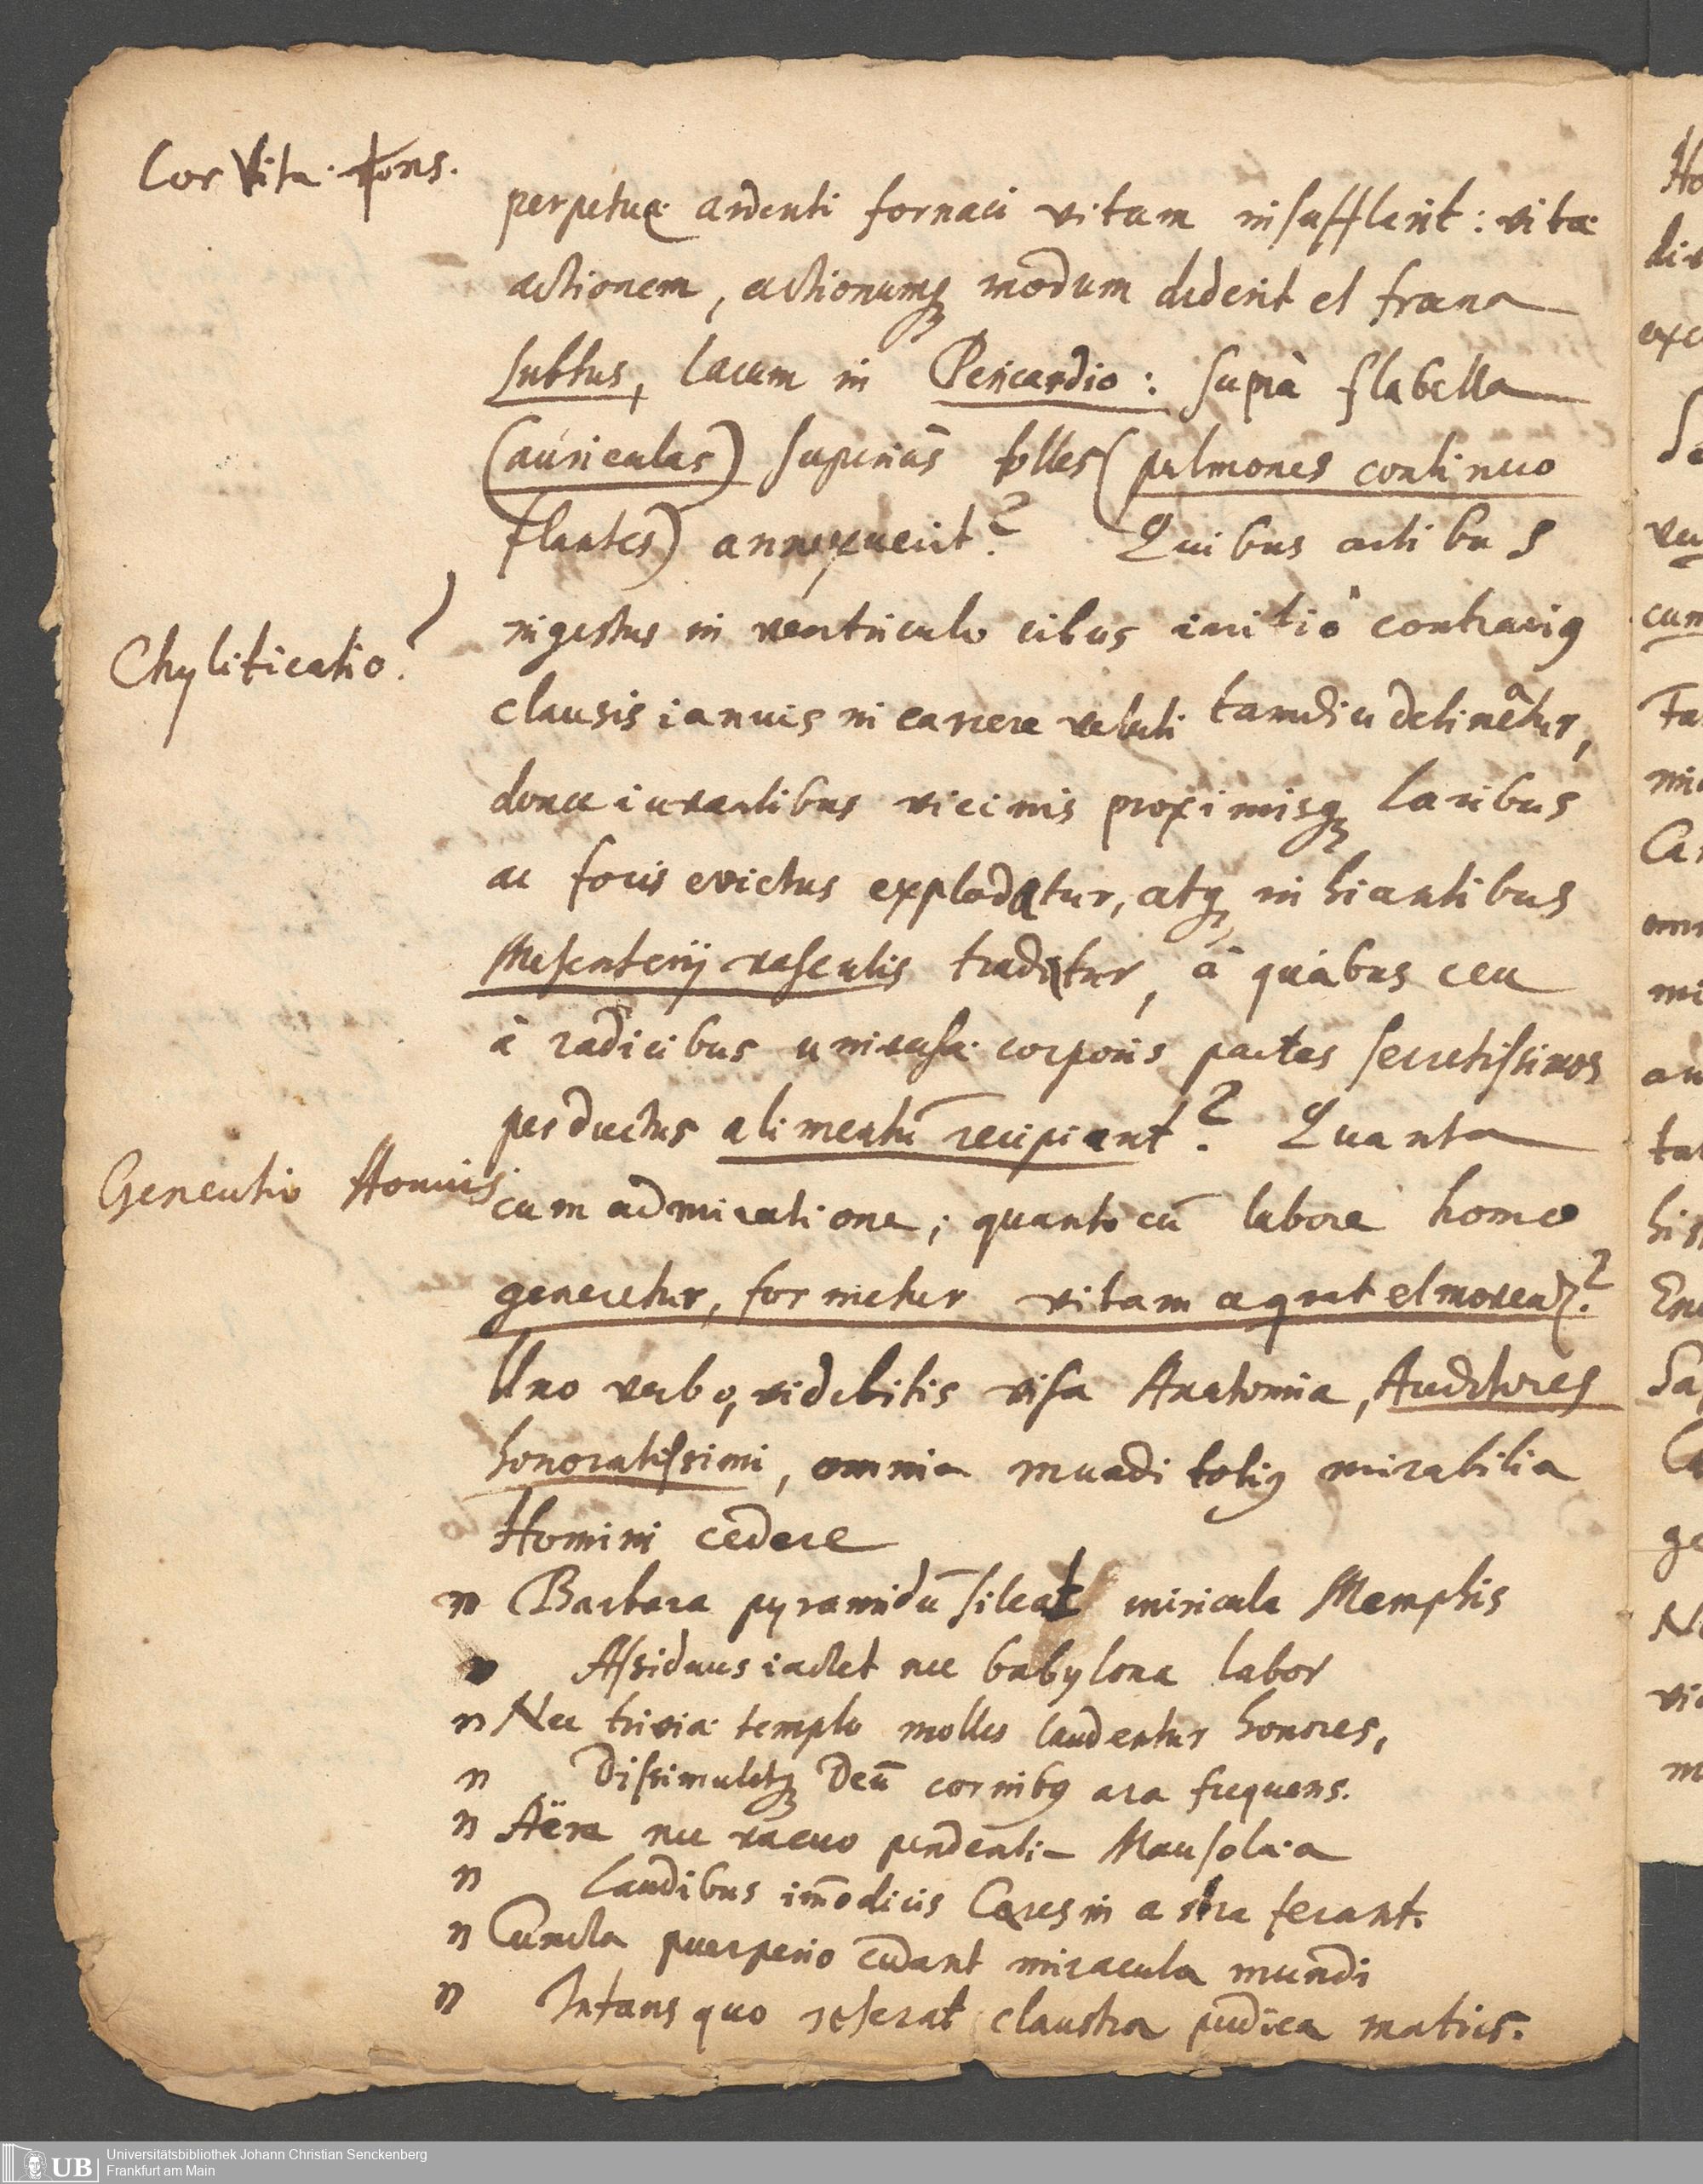 Cor Vitæ fons.
perpetuę ardenti fornaci vitam insufflarit: vitæ
actionem, actionumq3 modum dederit et fræna
subtus, lacum in Pericardio: supra flabella
(auriculas) superius folles (pulmones continuo
flantes) annexuerit? Quibus artibus
Chylificatio.
ingestus in ventriculo cibus initiò contrarijs
clausis ianuis in carcere veluti tamdiu detineatur,
donec iuvantibus vicinis proximisq3 laribus
ac focis evictus explodatur, atq3 in hiantibus
Mesenterij vasculis tradatur, à quibus ceu
à radicibus universæ corporis partes secretissimos
per ductus alimentū recipiant? Quanta
Generatio Hominis
cum admiratione; quanto cū labore homo
generetur, formetur vitam agat et moreat2?
Uno verbo, videbitis visa Anatomia, Auditores
honoratissimi, omnia mundi totig mirabilia
Homini cedere
" Barbara pyramidū sileat miricula Memphis
" Assiduus iactet nec babylona labor
" Nec triviæ templo molles laudentur honores,
" Dissimuletq3 Deū cornibg ara frequens.
" Aëre nec vacuo pendentia Mausolæa
" Laudibus im̄odicis Cares in astra ferant.
" Cuncta puerperio cedant miracula mundi
" Infans quo reserat claustra pudica matris.
Universitätsbibliothek Johann Christian Senckenberg
UB Frankfurt am Main